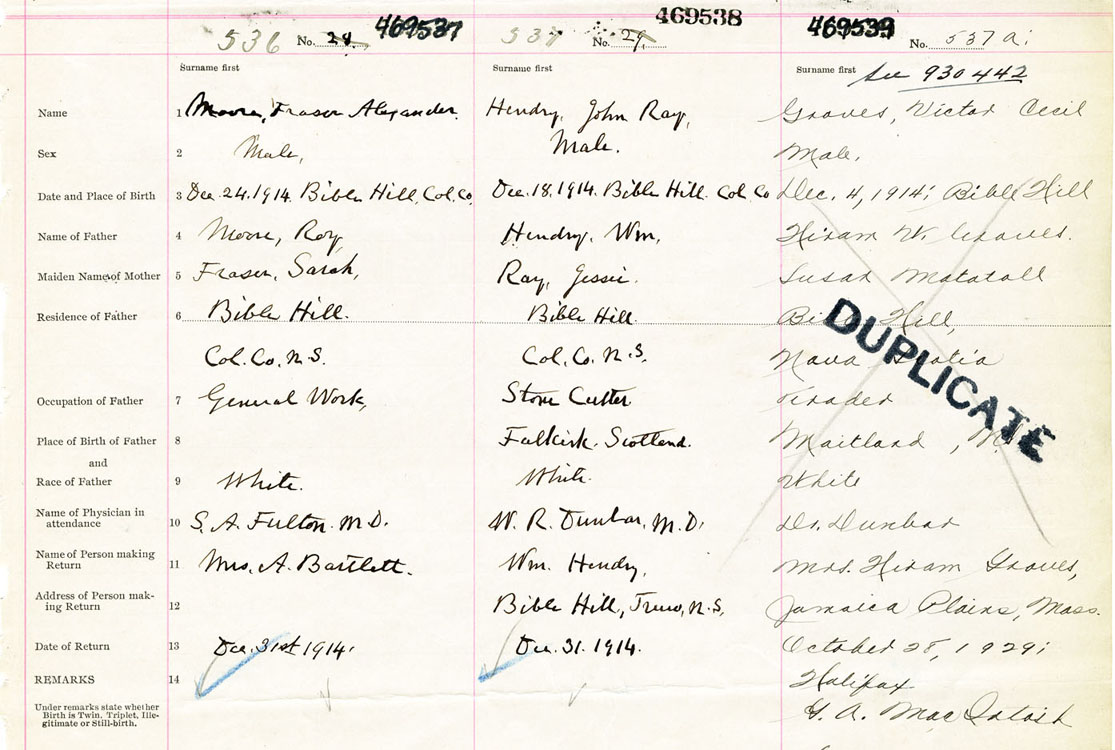 536 No. 28 469537 537 No. 29 469538 469539 No. 537 a;
Surname first Surname first Surname first See 930442
Name 1 Moore, Fraser Alexander. Hendry, John Ray, Graves, Victor Cecil
Sex 2 Male, Male. Male.
Date and Place of Birth 3 Dec. 24. 1914. Bible Hill, Col. Co. Dec. 18. 1914. Bible Hill. Col. Co Dec. 4, 1914; Bible Hill
Name of Father 4 Moore, Roy, Hendry, Wm, Hiram W. Graves.
Maiden Name of Mother 5 Fraser, Sarah, Ray, Jessie. Susan Matatall
Residence of Father 6 Bible Hill. Bible Hill. Bible Hill,
Col. Co. N.S. Col. Co. N.S. Nova Scotia
DUPLICATE
Occupation of Father 7 General Work, Stone Cutter Trader
Place of Birth of Father 8 Falkirk. Scotland. Maitland,
and
Race of Father 9 White. White. White
Name of Physician in
attendance 10 S. A. Fulton. M.D. W. R. Dunbar, M.D. Dr. Dunbar
Name of Person making
Return 11 Mrs. A. Bartlett. Wm. Hendry, Mrs. Hiram Graves,
Address of Person mak-
ing Return 12 Bible Hill, Truro, N.S. Jamaica Plains, Mass.
Date of Return 13 Dec. 31st 1914. Dec. 31. 1914. October 28, 1929;
REMARKS 14 Halifax
Under remarks state whether
Birth is Twin, Triplet, Ille-
gitimate or Still-birth.
G. A. MacIntosh